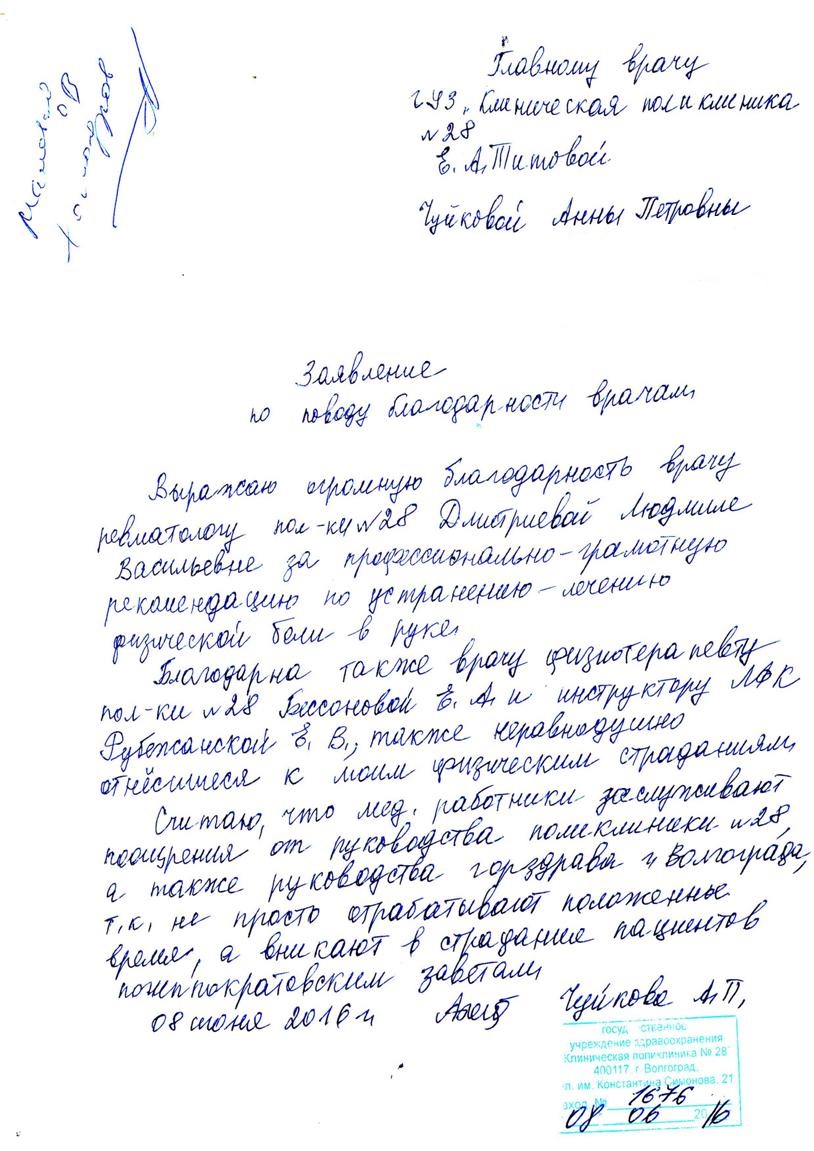 Главному врачу
ГУЗ „Клиническая поликлиника
№28
Е. А. Титовой
Чуйковой Анны Петровны
Заявление
по поводу благодарности врачам
Выражаю огромную благодарность врачу
ревматологу пол-ки №28 Дмитриевой Людмиле
Васильевне за профессионально-грамотную
рекомендацию по устранению-лечению
физической боли в руке.
Благодарна также врачу физиотерапевту
пол-ки №28 Бессоновой Е. А. и инструктору ЛФК
Рубежанской Е. В., также неравнодушно
отнёсшиеся к моим физическим страданиям.
Считаю, что мед. работники заслуживают
поощрения от руководства поликлиники №28,
а также руководства горздрава г. Волгограда,
т.к. не просто отрабатывают положенные
время, а вникают в страдание пациентов
по гиппократовским заветам
08 июня 2016 г. Чуйкова А. П.
государственное
учреждение здравоохранения
Клиническая поликлиника № 28
400117 г. Волгоград,
ул. им. Константина Симонова, 21
вход. № 1676
08 06 2016